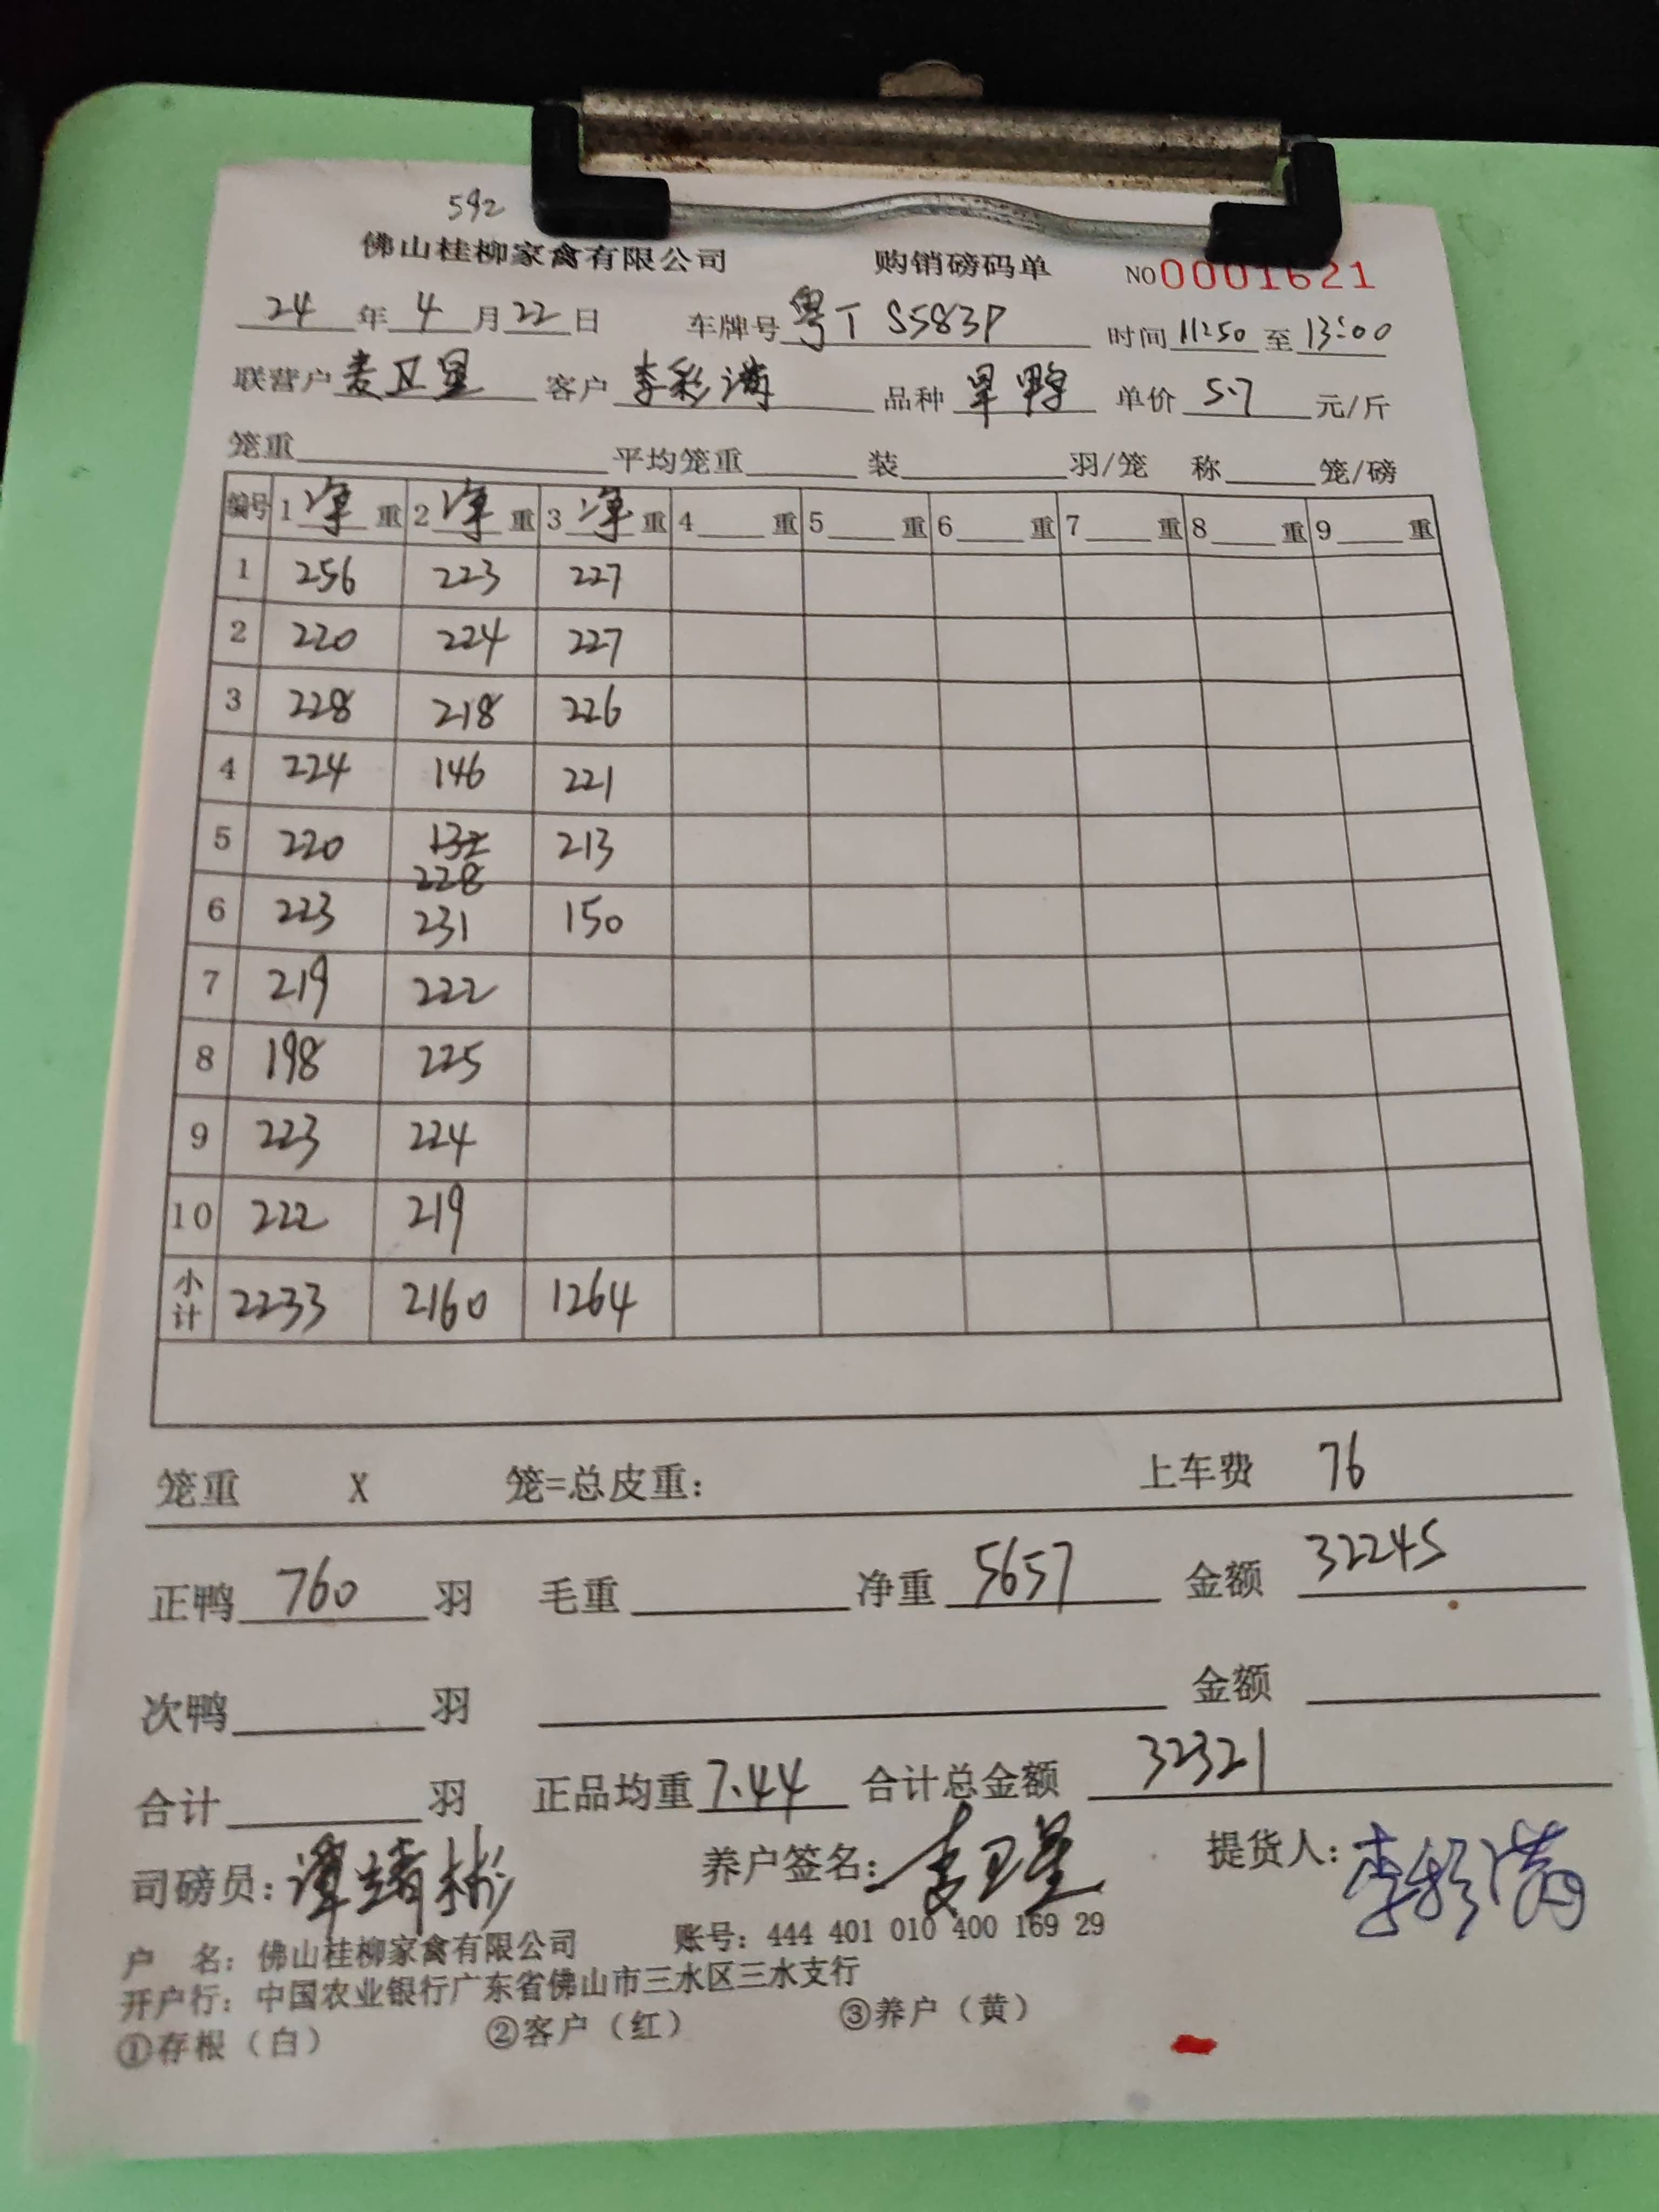 592
佛山桂柳家禽有限公司 购销磅码单 NO0001621
24年4月22日 车牌号粤T S583P 时间11:50至13:00
联营户麦卫星 客户李彩满 品种旱鸭 单价5.7元/斤
笼重 平均笼重 装 羽/笼 称 笼/磅
编号 1净重 2净重 3净重 4重 5重 6重 7重 8重 9重
1 256 223 227
2 220 224 227
3 228 218 226
4 224 146 221
5 220 132 213
228
6 223 231 150
7 219 222
8 198 225
9 223 224
10 222 219
小计 2233 2160 1264
笼重 X 笼=总皮重: 上车费 76
正鸭760羽 毛重 净重5657 金额32245
次鸭 羽 金额
合计 羽 正品均重7.44 合计总金额32321
司磅员:谭靖彬 养户签名:麦卫星 提货人:李彩满
户 名:佛山桂柳家禽有限公司 账号:444 401 010 400 169 29
开户行:中国农业银行广东省佛山市三水区三水支行
①存根(白) ②客户(红) ③养户(黄)